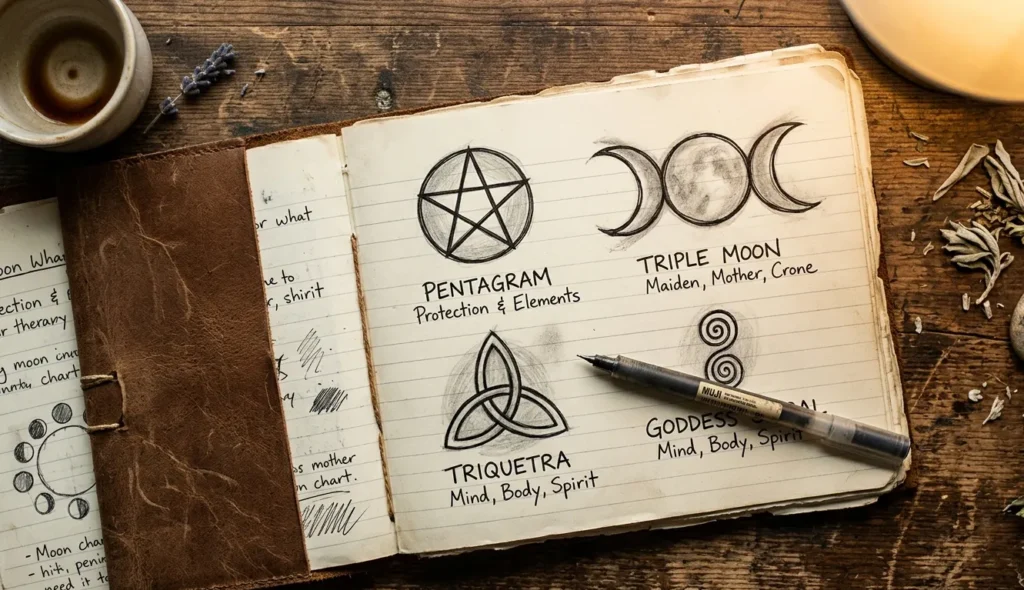 Moon Wha
ection &
r therapy
y moon
chart
- Moon cha
- hit,
need it to
or what
e to
r, shirit
s mother
n chart.
PENTAGRAM
Protection & Elements
TRIPLE MOON
Maiden, Mother, Crone
TRIQUETRA
Mind, Body, Spirit
MUJI
GODDESS
Mind, Body, Spirit